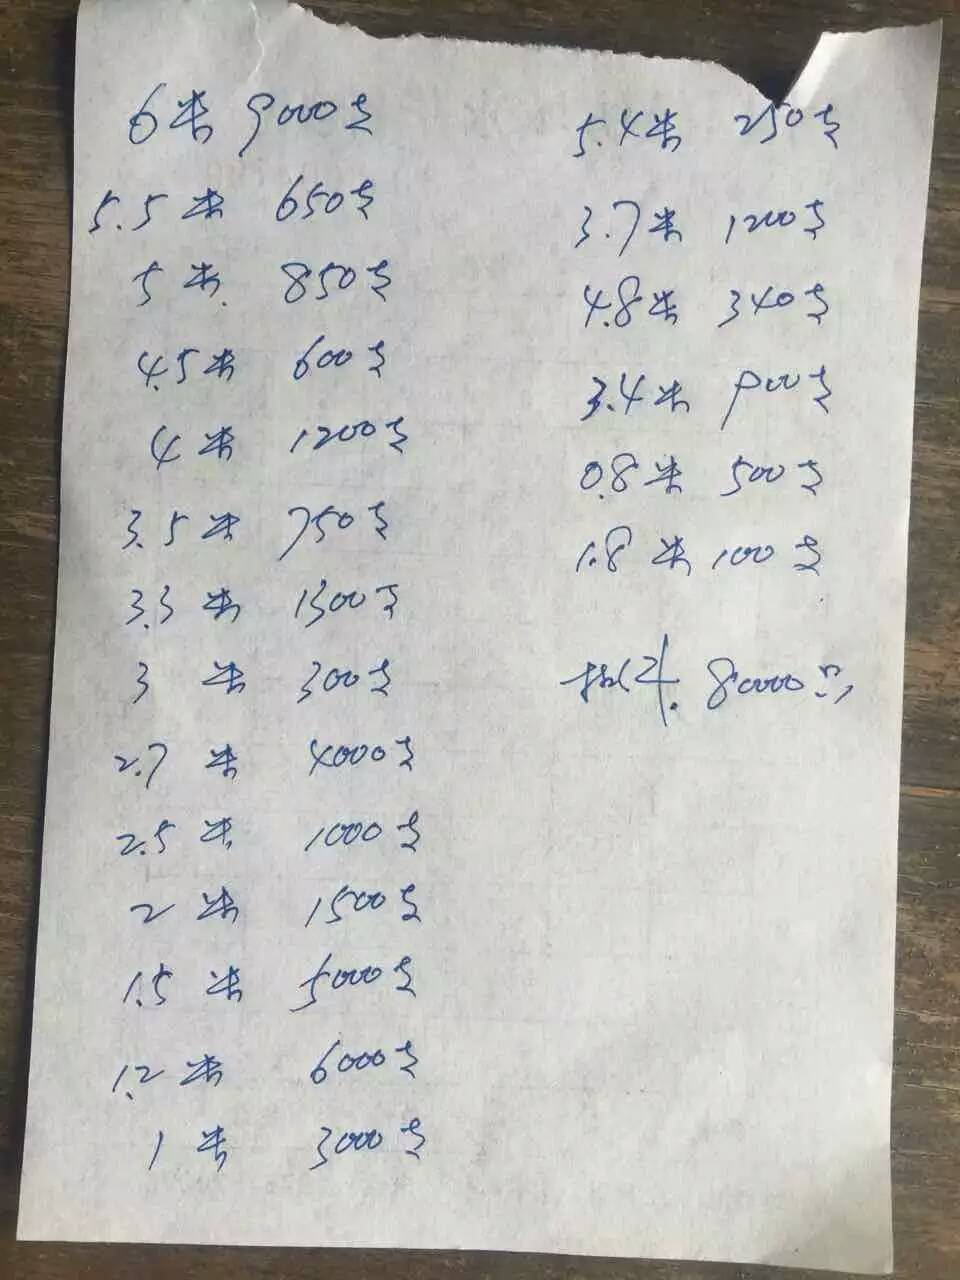 6米 9000支
5.5米 650支
5米 850支
4.5米 600支
4米 1200支
3.5米 750支
3.3米 1300支
3米 300支
2.7米 4000支
2.5米 1000支
2米 1500支
1.5米 5000支
1.2米 6000支
1米 3000支
5.4米 250支
3.7米 1200支
4.8米 340支
3.4米 900支
0.8米 500支
1.8米 100支
80000只